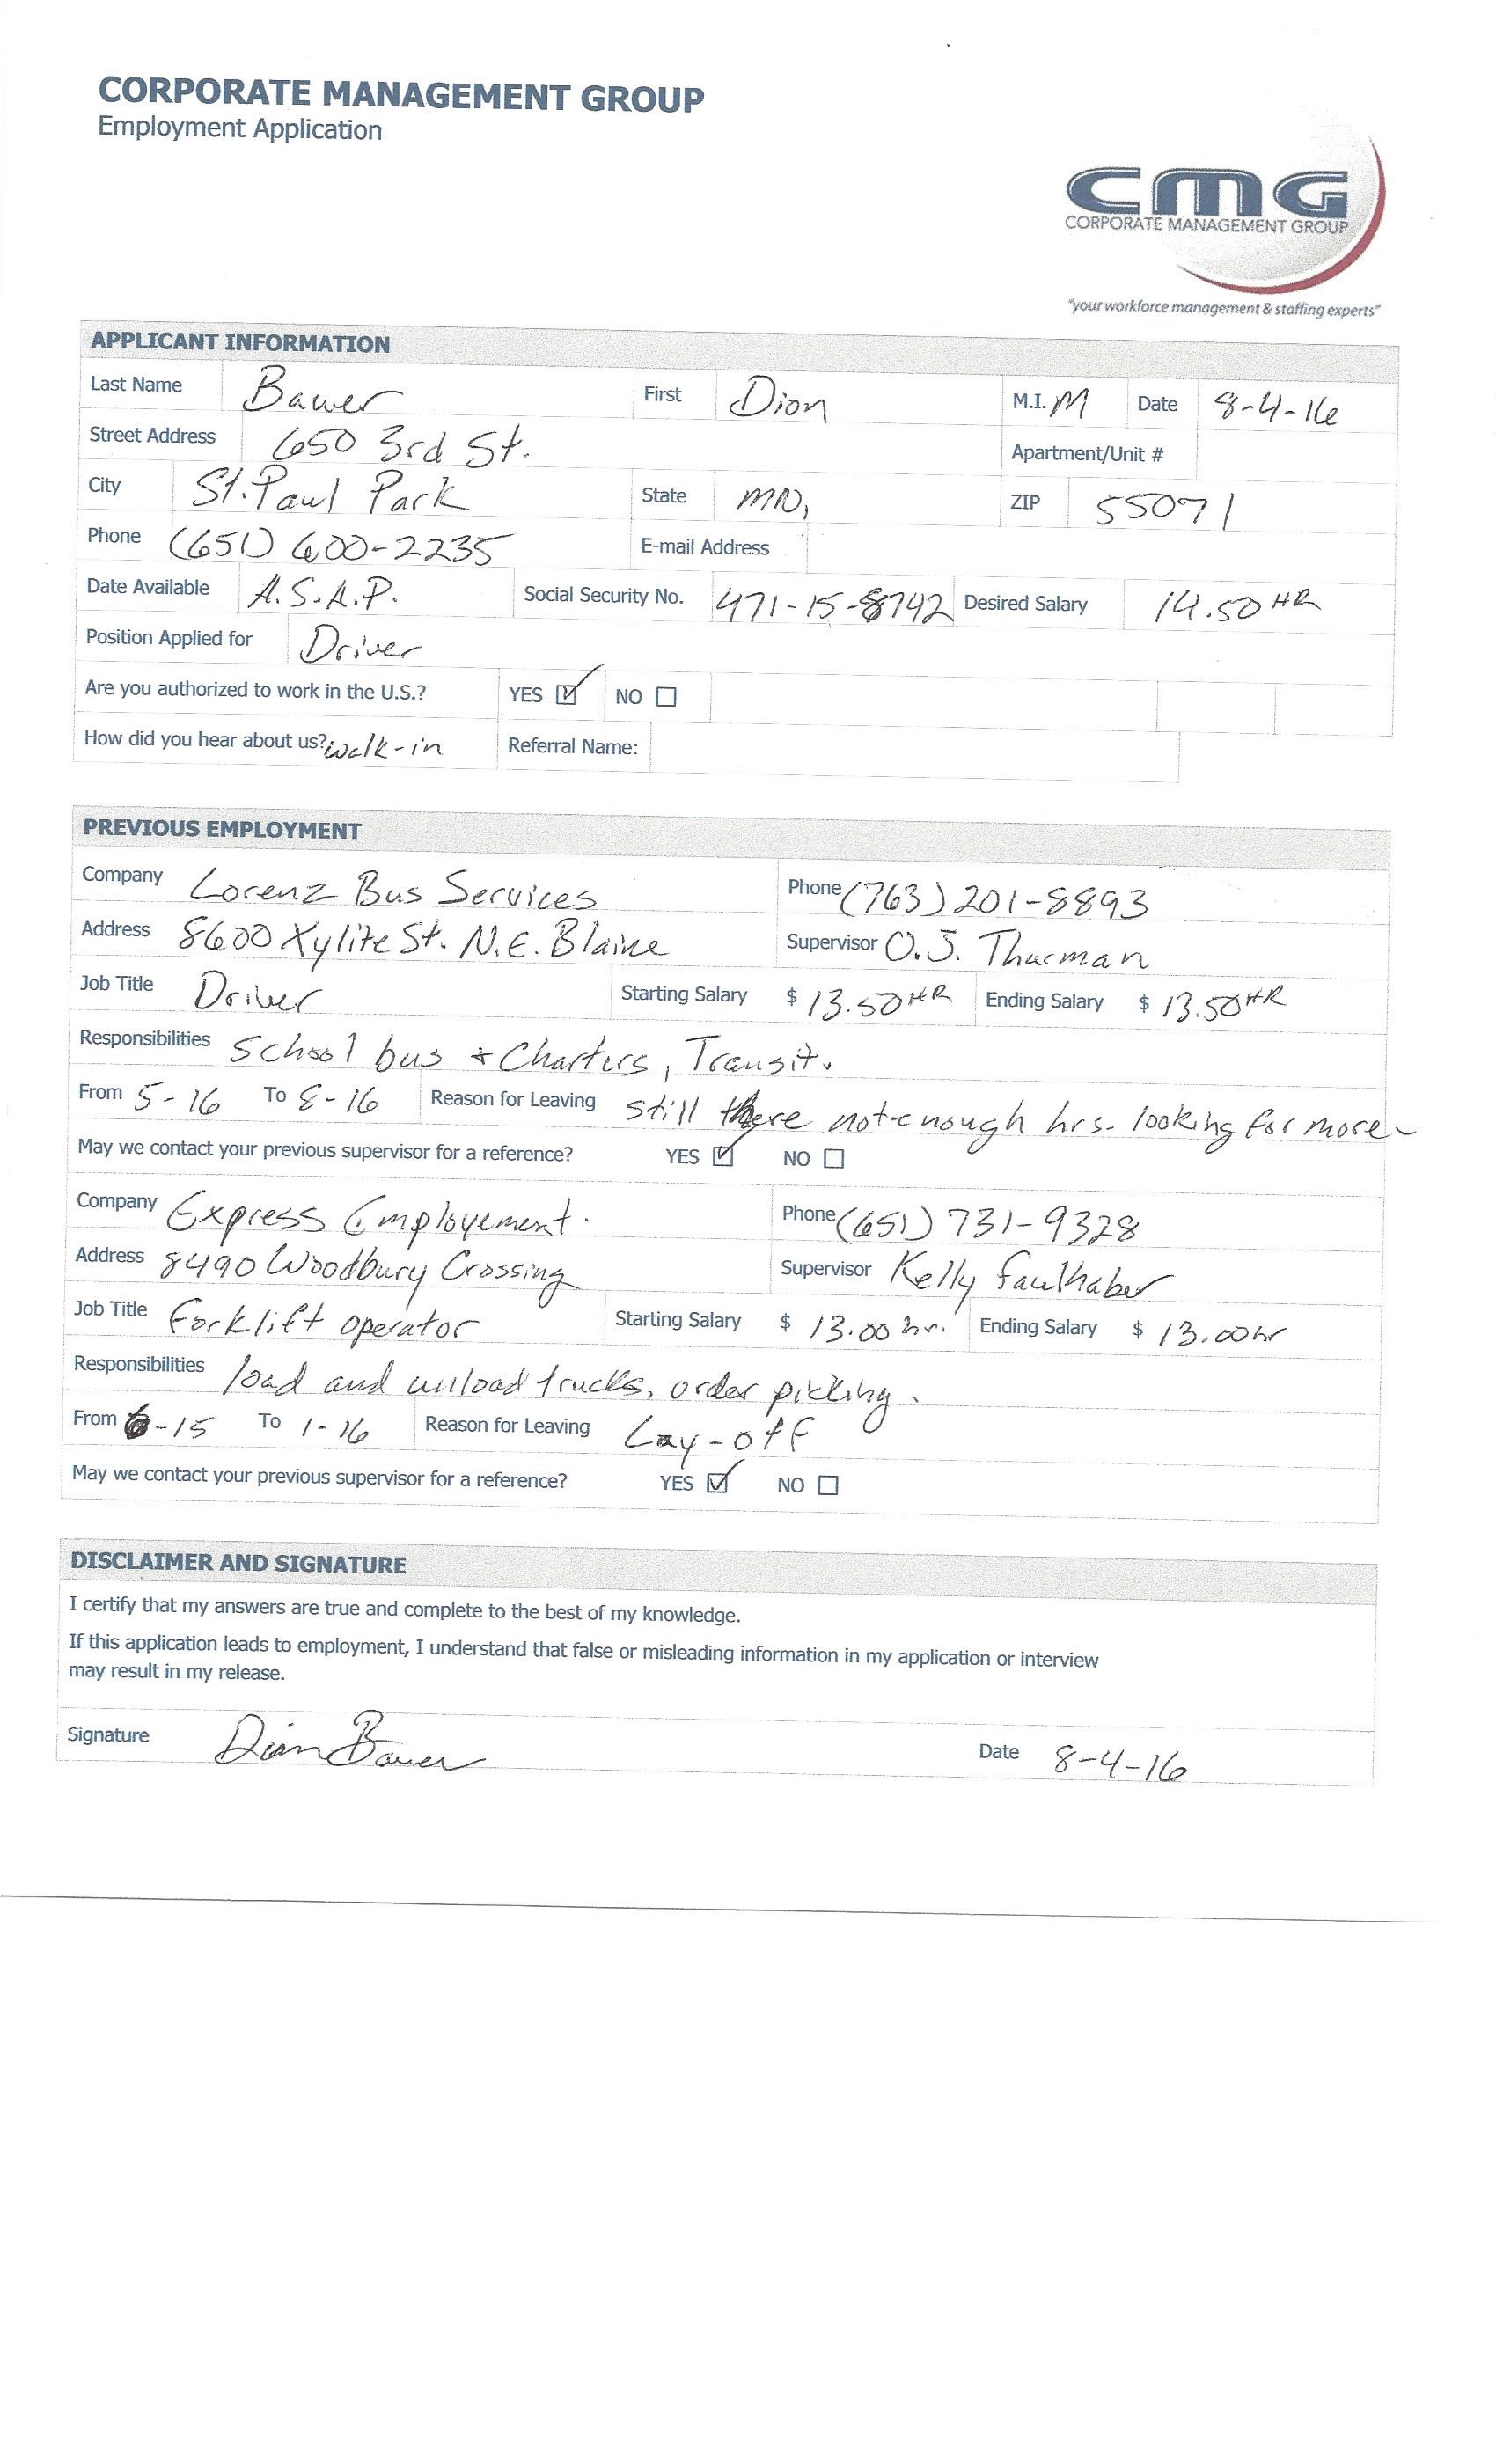 CORPORATE MANAGEMENT GROUP
Employment Application
CMG
CORPORATE MANAGEMENT GROUP
"your workforce management & staffing experts"
APPLICANT INFORMATION
Last Name Bauer First Dion M.I. M Date 8-4-16
Street Address 650 3rd St. Apartment/Unit #
City St. Paul Park State MN, ZIP 55071
Phone (651) 600-2235 E-mail Address
Date Available A.S.A.P. Social Security No. 471-15-8742 Desired Salary 14.50 HR
Position Applied for Driver
Are you authorized to work in the U.S.? YES ☑ NO ☐
How did you hear about us? walk-in Referral Name:
PREVIOUS EMPLOYMENT
Company Lorenz Bus Services Phone (763) 201-8893
Address 8600 Xylite St. N.E. Blaine Supervisor O.J. Thurman
Job Title Driver Starting Salary $ 13.50 HR Ending Salary $ 13.50 HR
Responsibilities School bus + Charters, Transit.
From 5-16 To 8-16 Reason for Leaving still there not enough hrs. looking for more
May we contact your previous supervisor for a reference? YES ☑ NO ☐
Company Express Employement. Phone (651) 731-9328
Address 8490 Woodbury Crossing Supervisor Kelly Faulhaber
Job Title Forklift operator Starting Salary $ 13.00 hr. Ending Salary $ 13.00 hr
Responsibilities load and unload trucks, order picking.
From 6-15 To 1-16 Reason for Leaving Lay-off
May we contact your previous supervisor for a reference? YES ☑ NO ☐
DISCLAIMER AND SIGNATURE
I certify that my answers are true and complete to the best of my knowledge.
If this application leads to employment, I understand that false or misleading information in my application or interview
may result in my release.
Signature Dion Bauer Date 8-4-16